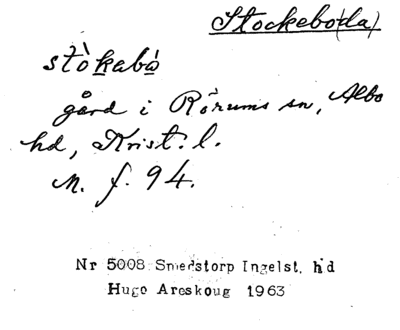 Stockebo(da)
stòkabà
gård i Rörums sn, Albo
hd, Krist. l.
M. f. 94.
Nr 5008 Smedstorp Ingelst. hd
Hugo Areskoug 1963